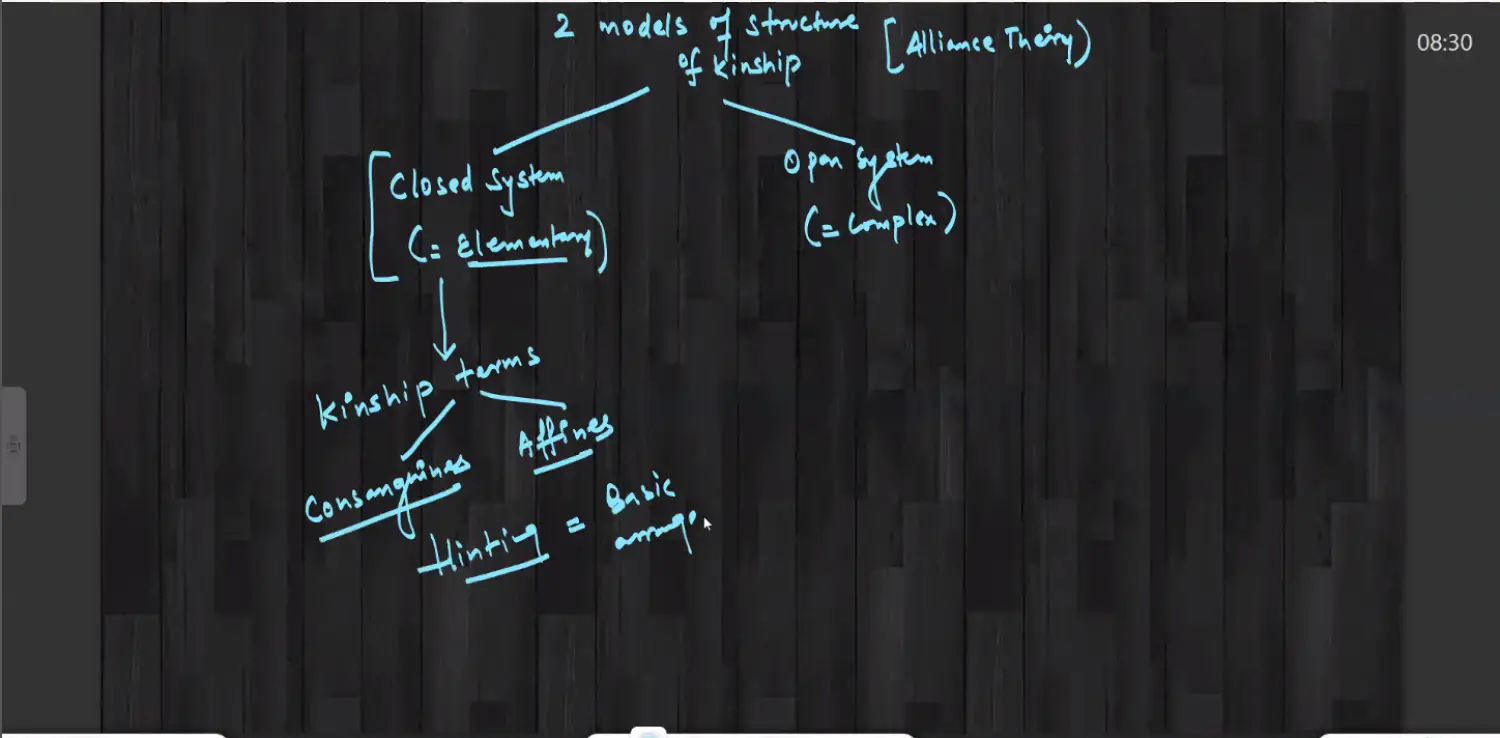 2 models of structure
of kinship
[Alliance Theory)
08:30
Closed system
(= Elementary)
Open system
(= complex)
Kinship terms
Consanguines
Affines
Hinting = Basic
arrange